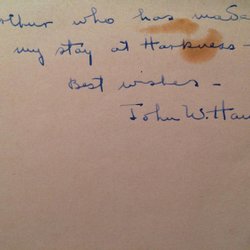 other who has made
my stay at Harkness -
Best wishes -
John W. Hau